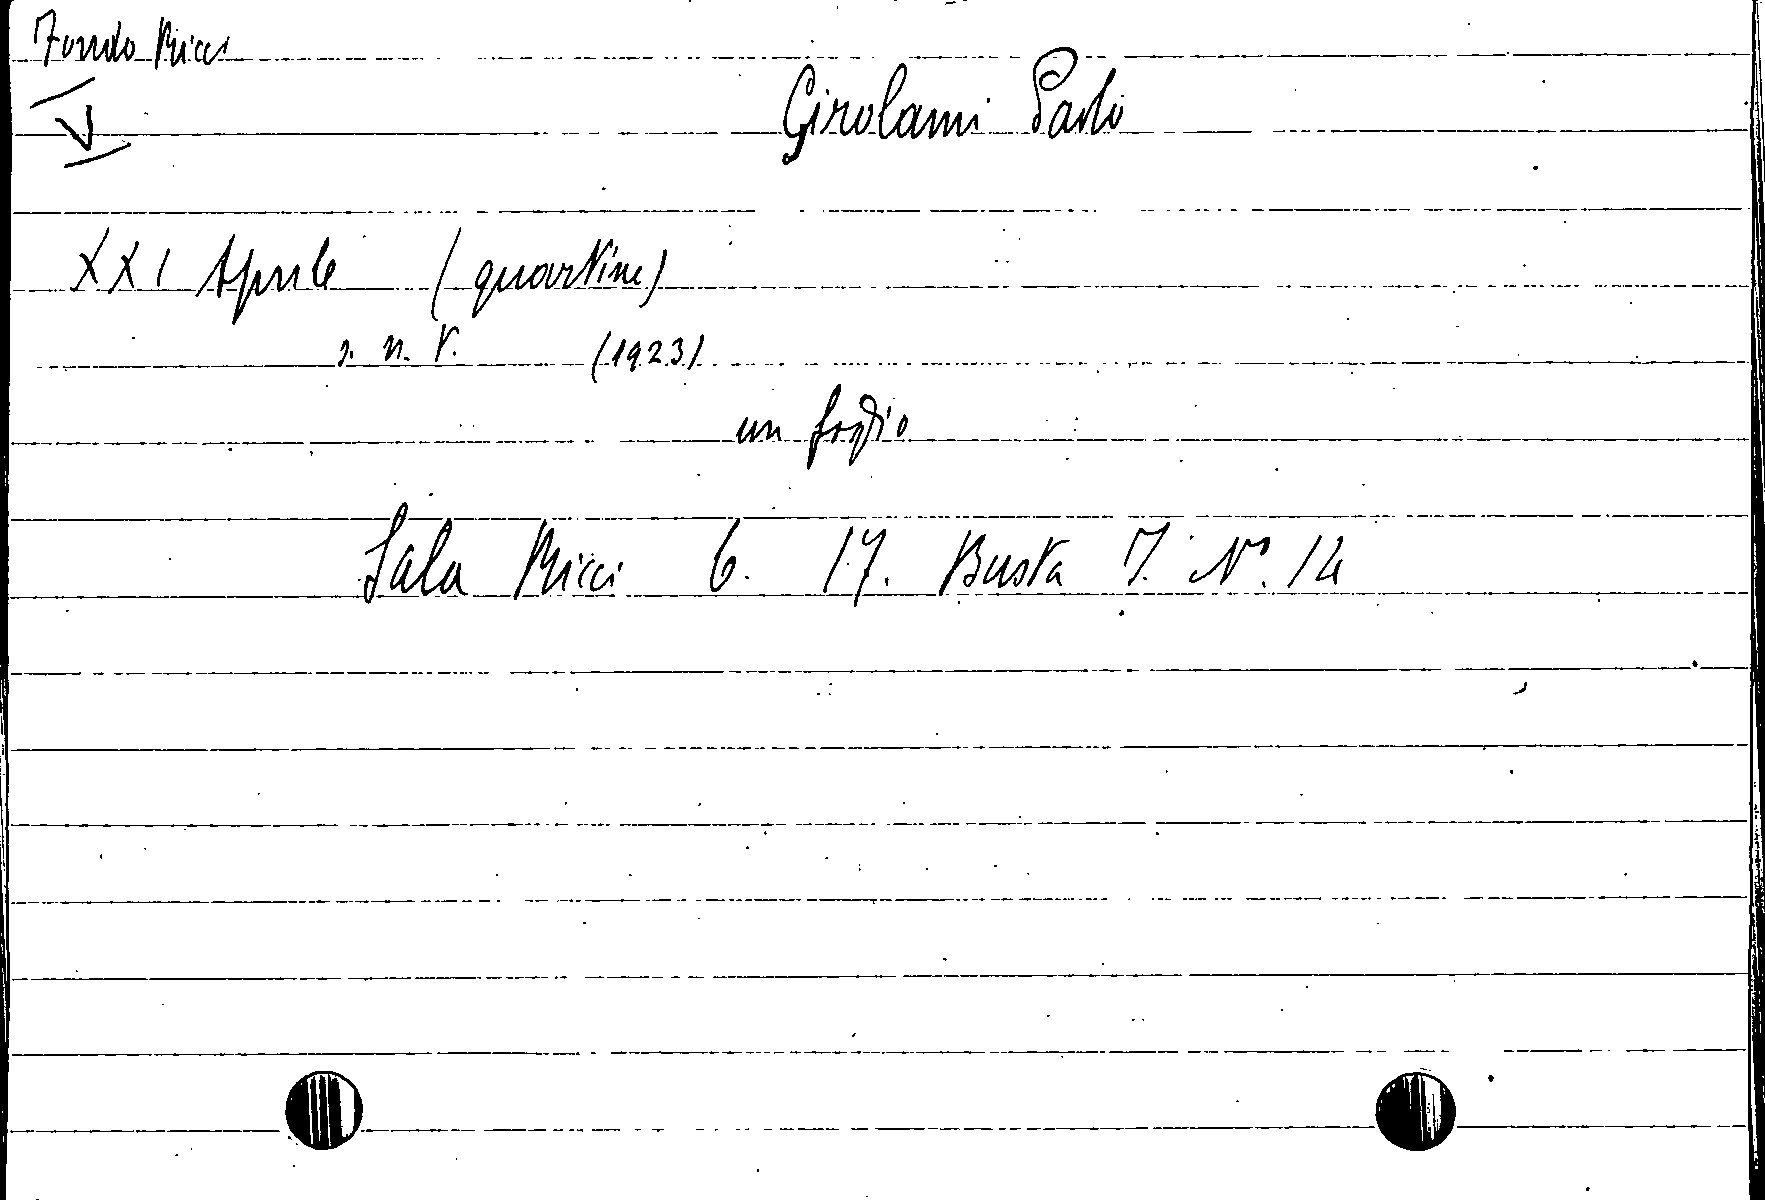 Fondo Ricci
V
Girolami Paolo
XXI Aprile (quartine)
s. n. t. (1923)
un foglio
Sala Ricci 6. 17. Busta I. N°. 14